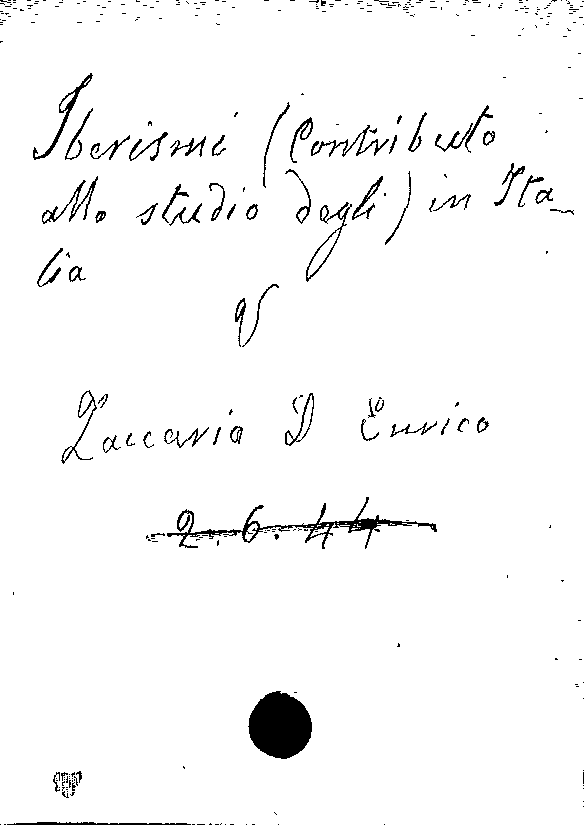 Iberismi (Contributo
allo studio degli) in Ita_
lia
V
Zaccaria D Enrico
2.6.44